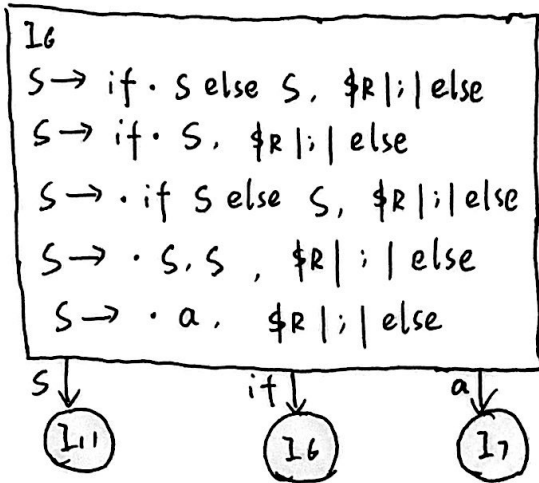 I6
S → if · S else S, $R | ; | else
S → if · S, $R | ; | else
S → · if S else S, $R | ; | else
S → · S, S , $R | ; | else
S → · a, $R | ; | else
S if a
I11 I6 I7